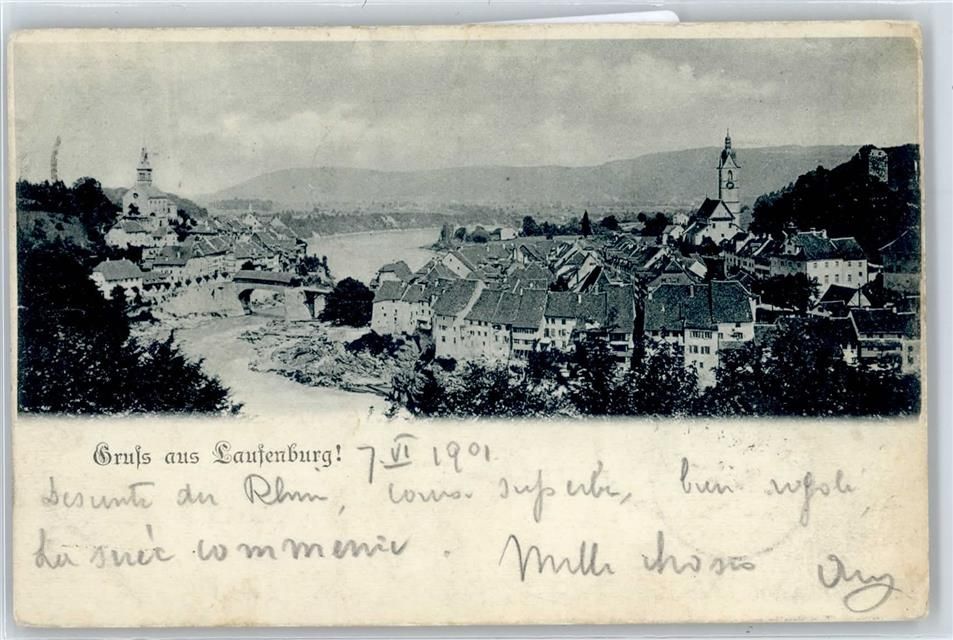 Gruss aus Laufenburg! 7 VI 1901
Descente du Rhin, cours superbe, bien rigolé
La suée commence. Mille choses